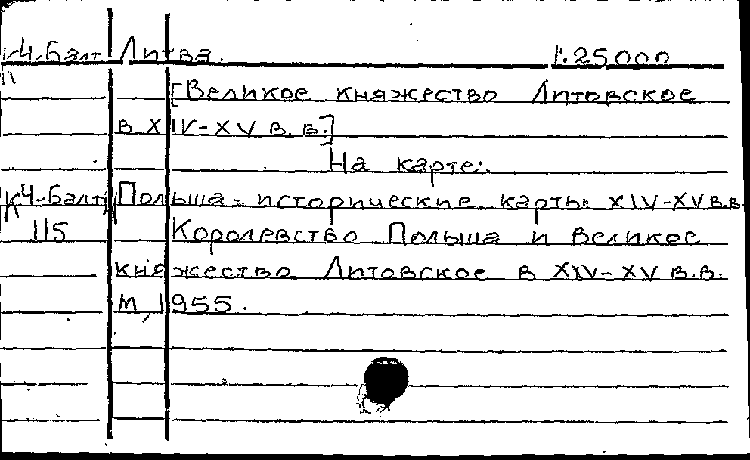 К4-Балт Литва. 1:25000
[Великое княжество Литовское
в XIV-XV в.в.]
На карте:
К4-Балт Польша - исторические карты XIV-XV в.в.
115 Королевство Польша и Великое
княжество Литовское в XIV-XV в.в.
М, 1955.